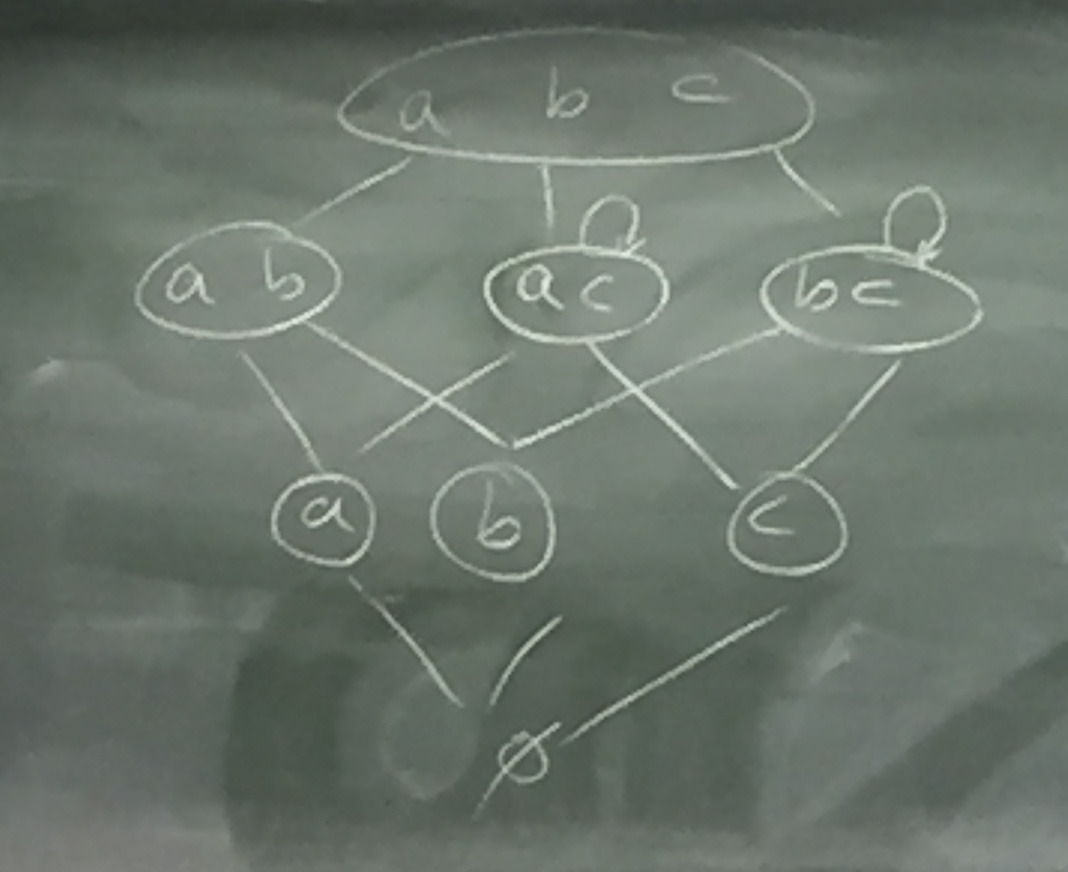 a b c
a b a c b c
a b c
∅